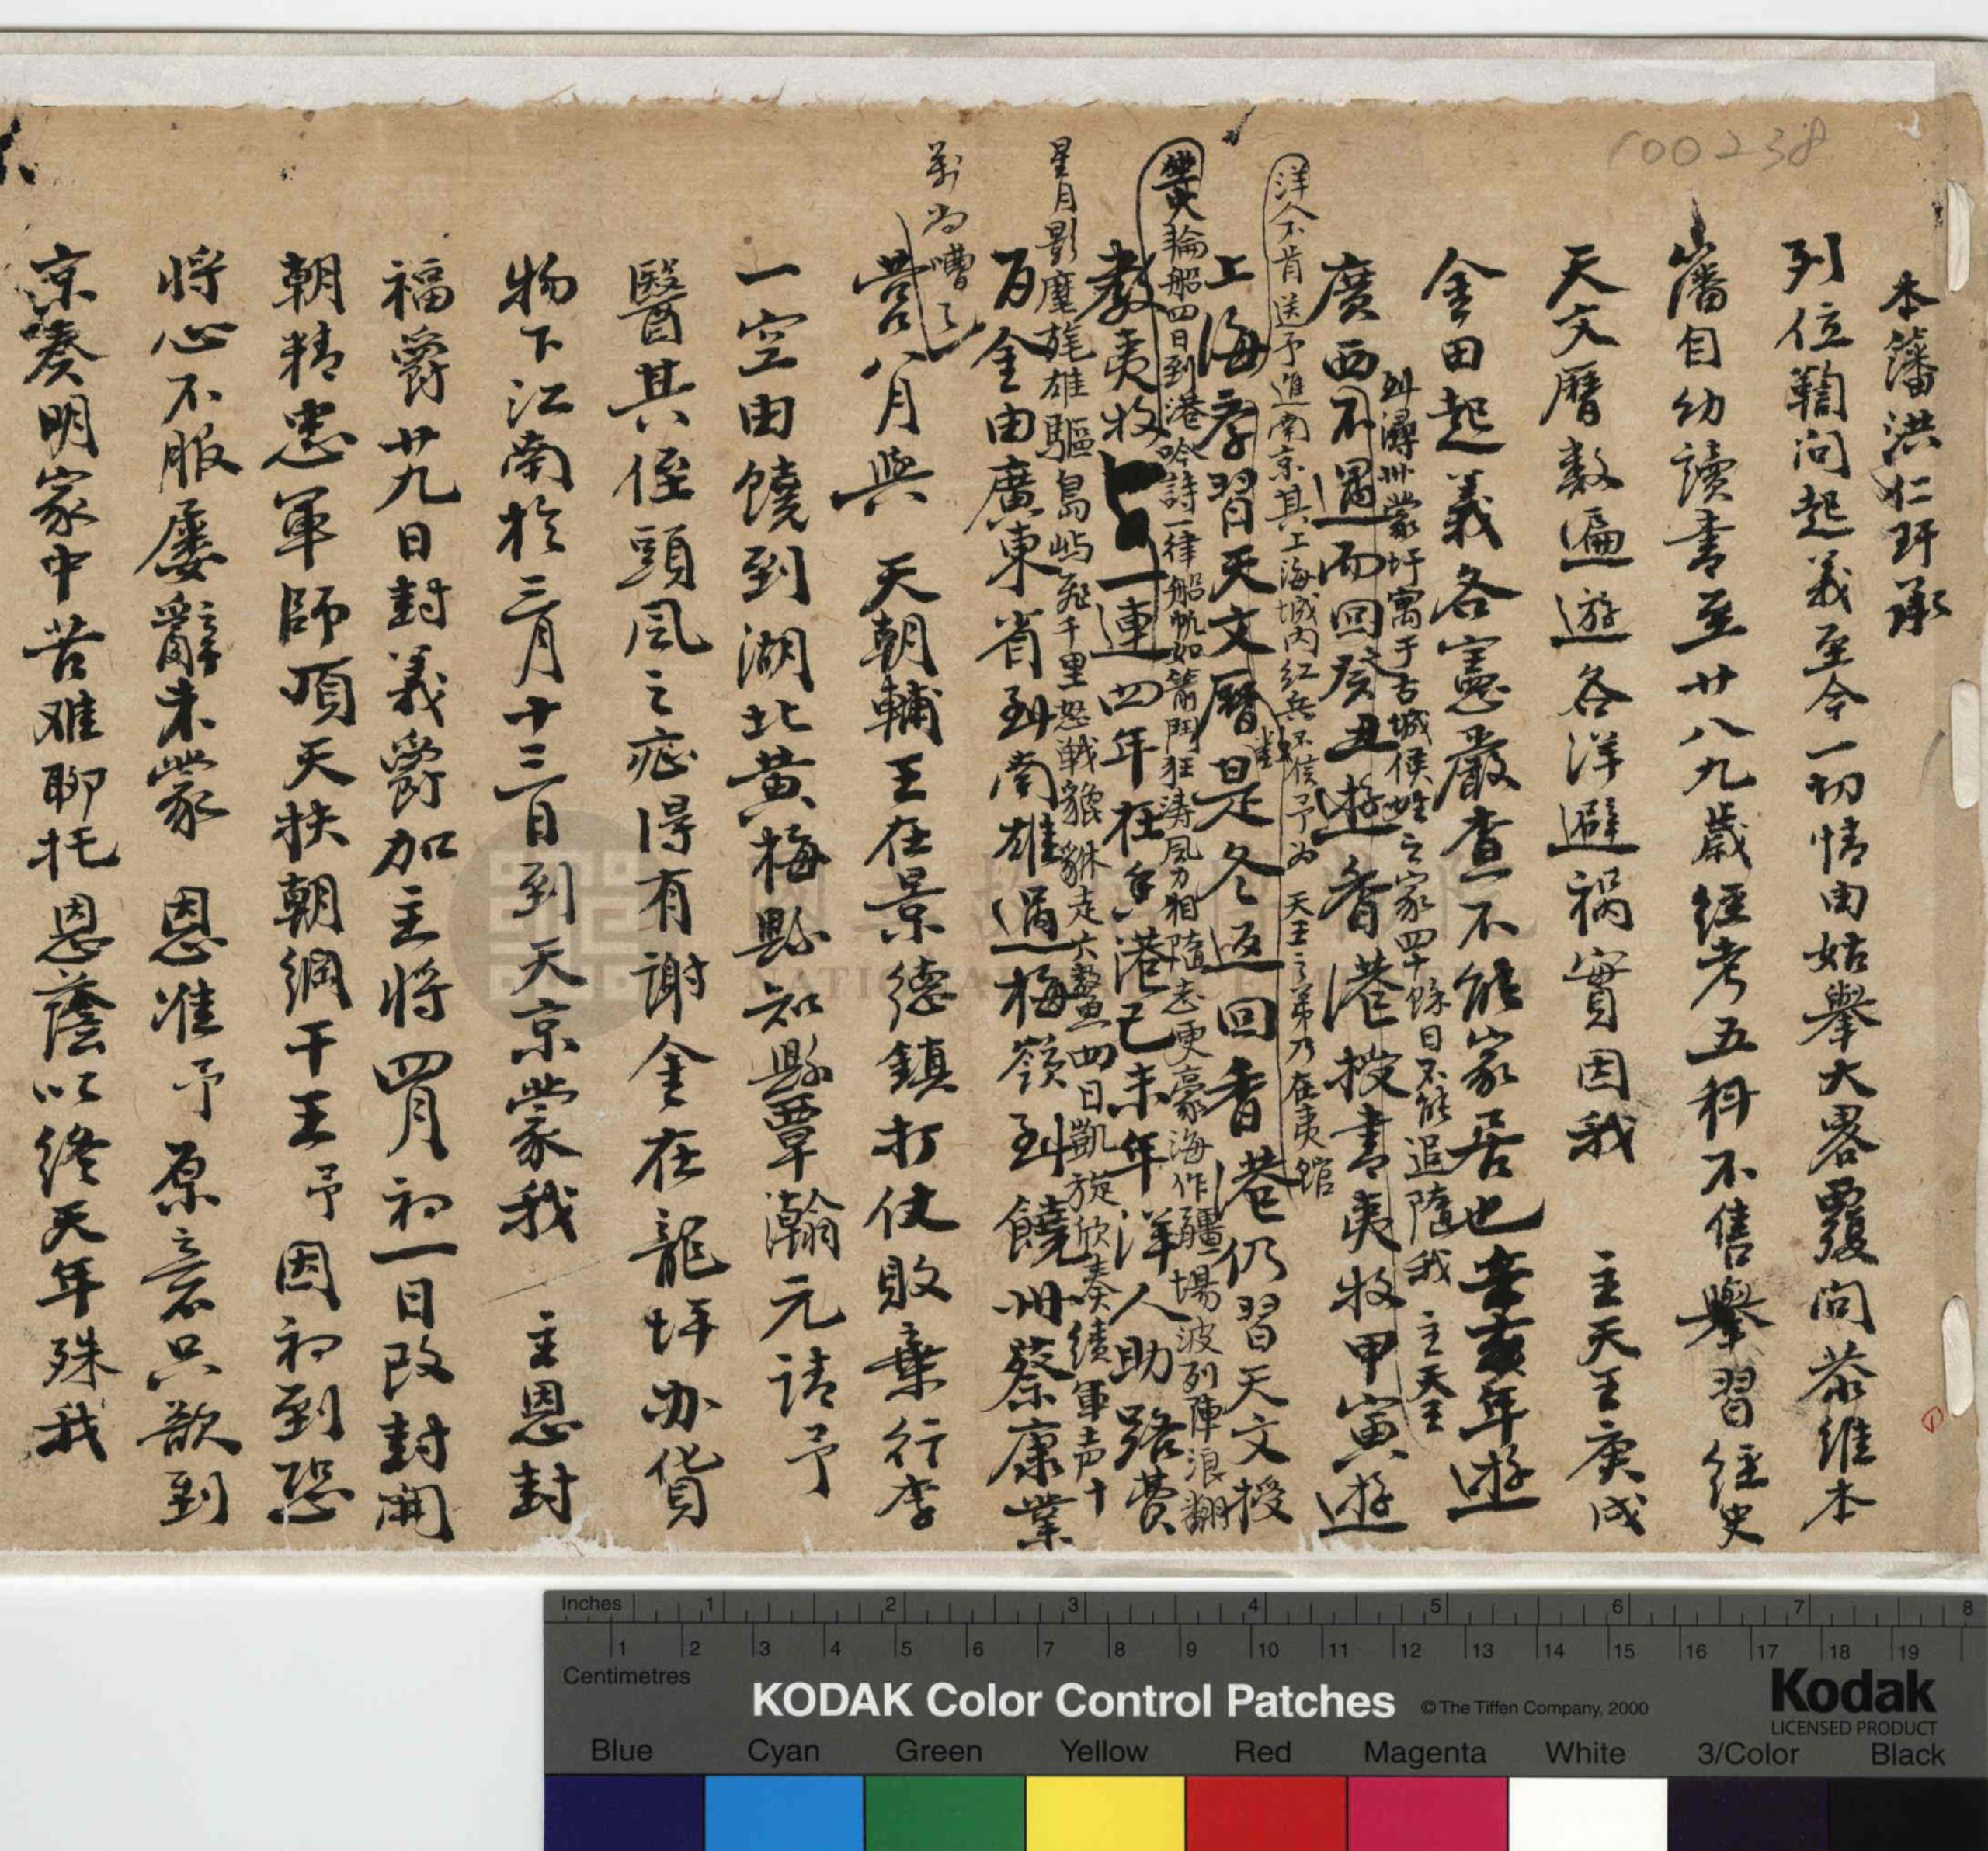 100238
本藩洪仁玕承
列位鞫問起義至今一切情由姑舉大畧覆問恭維本
藩自幼讀書至廿八九歲經考五科不售舉習經史
天文曆數遍遊各洋避祸實因我 主天王庚戌
金田起義各憲嚴查不能家居也辛亥年遊
到潯州蒙圩寓于古城侯姓之家四十餘日不能追隨我 主天王
廣西不遇而回癸丑遊香港授書夷牧甲寅遊
洋人不肯送予進南京其上海城内红兵不信予为 天王之弟乃在夷館
上海孝習天文曆是冬返回香港仍習天文授
火輪船四日到港吟詩一律船帆如箭鬥狂涛風力相隨志更豪海作疆場波列陣浪翻
教夷牧一連四年在香港己未年洋人助路費
星月影麾旄雄驅島屿飛千里怒戰貔貅走六鰲四日凱旋欣奏績軍声十
百金由廣東省到南雄過梅嶺到饒州蔡康業
萬尚嘈嘈
营八月與 天朝輔王在景德鎮打仗敗棄行李
一空由饒到湖北黄梅縣知縣覃瀚元請予
醫其侄頭風之症得有謝金在龍坪办貨
物下江南於三月十三日到天京蒙我 主恩封
福爵廿九日封義爵加主將四月初一日改封開
朝精忠軍師頂天扶朝綱干王予因初到恐
將心不服屡辭未蒙 恩准予原意只欲到
京奏明家中苦难聊托恩蔭以终天年殊我
NATIONAL
Inches 1 2 3 4 5 6 7 8
1 2 3 4 5 6 7 8 9 10 11 12 13 14 15 16 17 18 19
Centimetres
KODAK Color Control Patches
©The Tiffen Company, 2000
Kodak
LICENSED PRODUCT
Blue Cyan Green Yellow Red Magenta White 3/Color Black